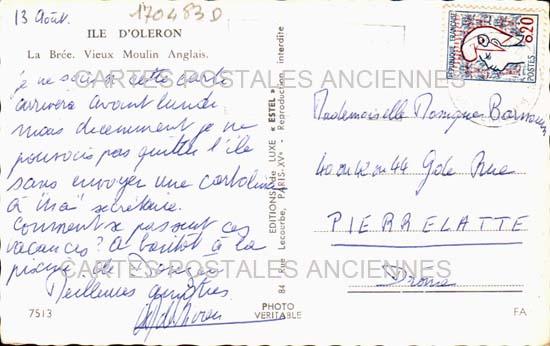 13 Août.
170483D
ILE D'OLERON
La Brée. Vieux Moulin Anglais.
je ne sais si cette carte
arrivera avant lundi
mais décemment je ne
pouvais pas quitter l'île
sans envoyer une cartolina
à "ma" secrétaire.
Comment se passent ces
vacances? A bientôt à la
piscine de
Meilleures amitiés.
7513
PHOTO
VERITABLE
EDITIONS de LUXE « ESTEL »
84 Rue Lecourbe, PARIS-XVe - Reproduction interdite
REPUBLIQUE FRANÇAISE
0,20
POSTES
Mademoiselle Monique
40 ou 42 ou 44 Gde Rue
PIERRELATTE
Drome
FA
CARTES POSTALES ANCIENNES
CARTES POSTALES ANCIENNES